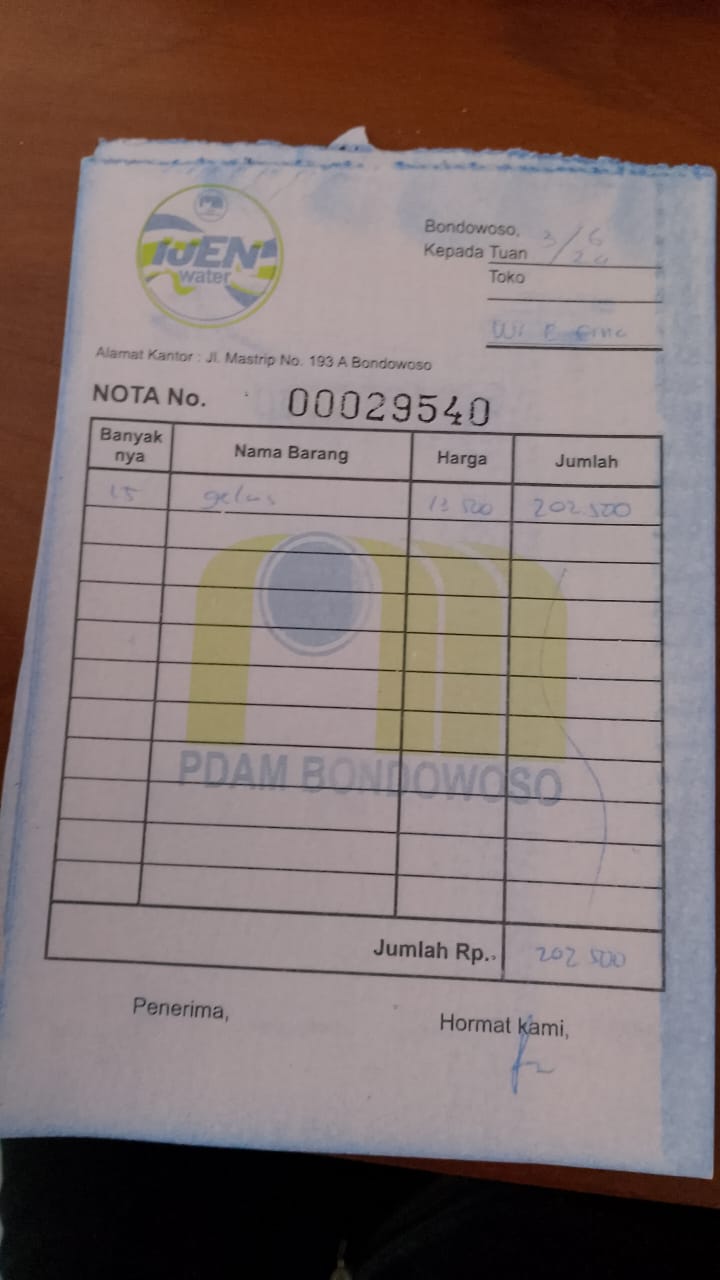 IJEN
water
Bondowoso, 3/6
Kepada Tuan 24
Toko
Alamat Kantor : Jl. Mastrip No. 193 A Bondowoso
NOTA No. 00029540
Banyak nya Nama Barang Harga Jumlah
15 gelas 13 500 202.500
PDAM BONDOWOSO
Jumlah Rp.. 202 500
Penerima,
Hormat kami,